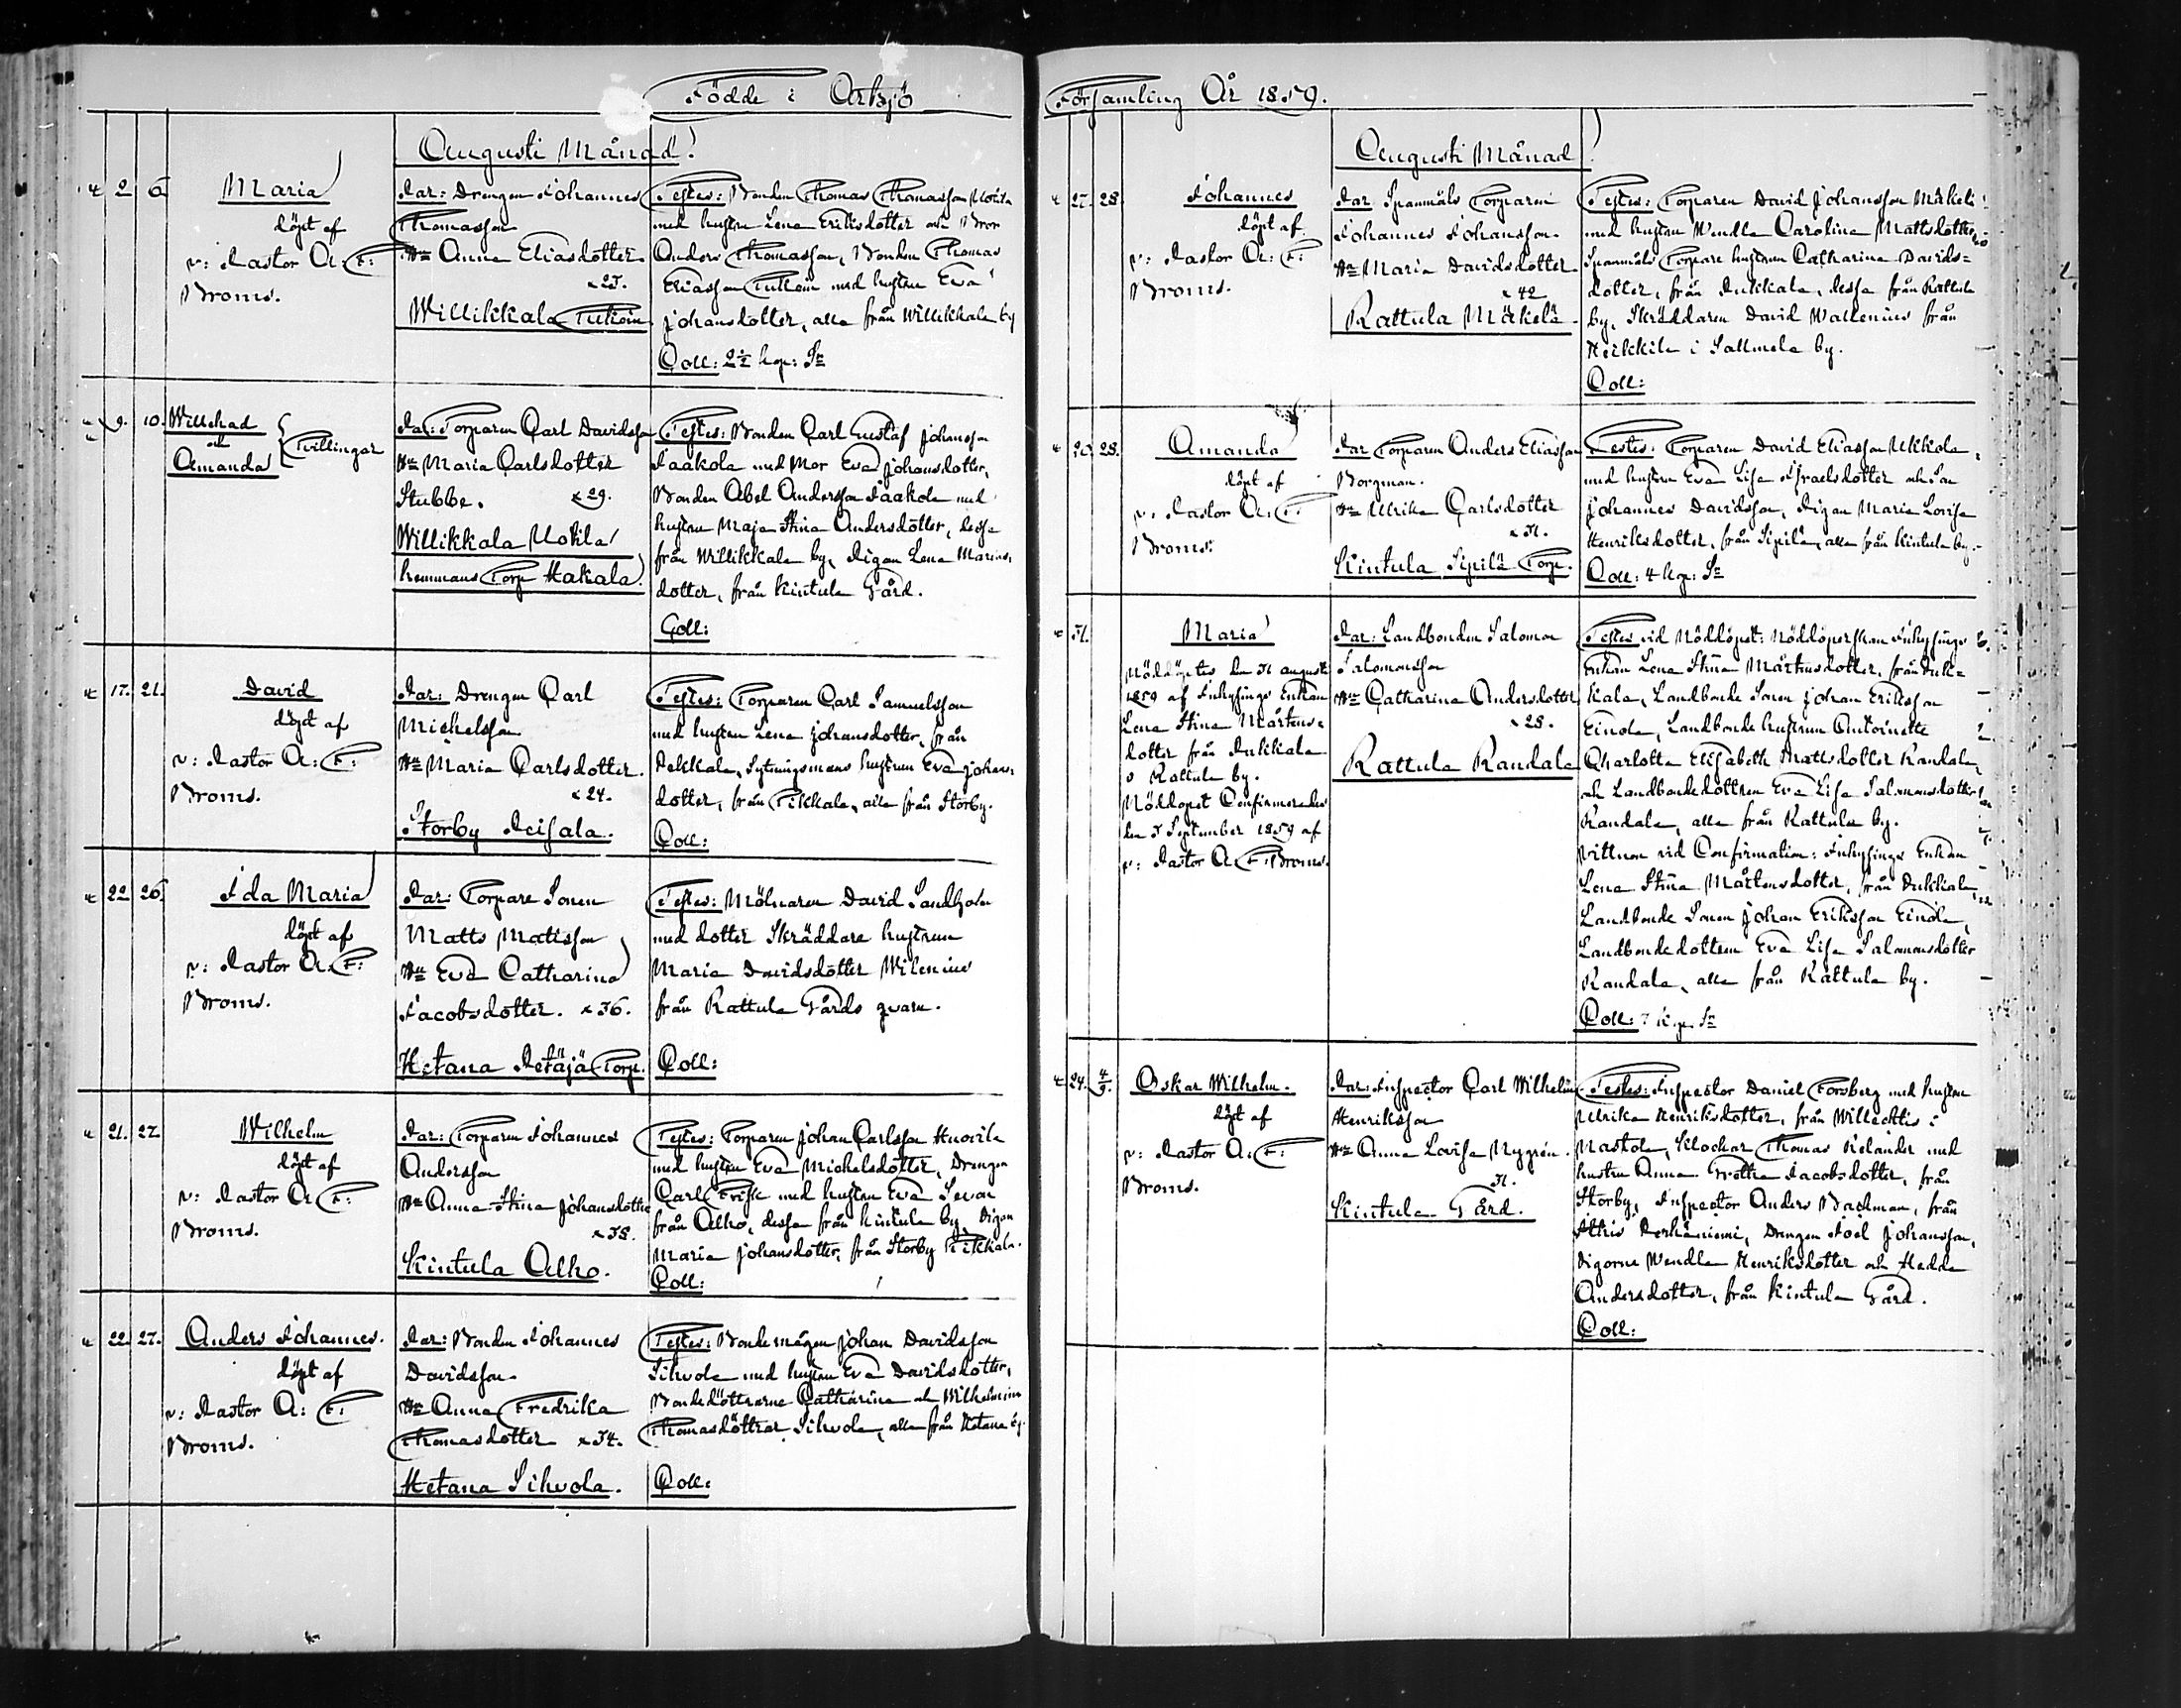 Födde i Artsjö
Augusti Månad.
" 2 6
Maria
döpt af
v: Pastor A: F:
Broms.
Par: Drengen Johannes
Thomasson
Hu Anna Eliasdotter
" 23.
Willikkala Tuhkin
Testes: Bonden Thomas Thomasson Uotila
med hustru Lena Eriksdotter och Bror
Anders Thomasson, Bonden Thomas
Eliasson med hustru Eva
Johansdotter, alla från Willikkala by
Coll: 2½ kop: Sr
" 9. 10.
Willehad
och
Amanda
Tvillingar
Par: Torparen Carl Davidsson
Hu Maria Carlsdotter
Stubbe. " 29.
Willikkala Uotila
hemmans Torp Hakala.
Testes: Bonden Carl Gustaf Johansson
Jaakola med Mor Eva Johansdotter,
Bonden Abel Andersson Jaakola med
hustru Maja Stina Andersdotter, desse
från Willikkala by, Pigan Lena Marias
dotter, från Kintula Gård.
Coll:
" 17. 21.
David
döpt af
v: Pastor A: F:
Broms.
Par: Drengen Carl
Michelsson
Hu Maria Carlsdotter.
" 24.
Storby Peisala.
Testes: Torparen Carl Samuelsson
med hustru Lena Johansdotter, från
Pekkala, Sytningsmans hustrun Eva Johans
dotter, från Pikkala, alla från Storby.
Coll:
" 22 26.
Ida Maria
döpt af
v: Pastor A. F:
Broms.
Par: Torpare Sonen
Matts Mattsson
Hu Eva Catharina
Jacobsdotter. " 36.
Hetana Petäjä Torp.
Testes: Mölnaren David Sandholm
med dotter Skräddare hustrun
Maria Davidsdotter Wilenius
från Rattula Gårds qvarn.
Coll:
" 21. 27.
Wilhelm
döpt af
v: Pastor A F:
Broms.
Par: Torparen Johannes
Andersson
Hu Anna Stina Johansdotter
" 38.
Kintula Alho.
Testes: Torparen Johan Carlsson Anovila
med hustru Eva Michelsdotter, Drengen
Carl Frisk med hustru Eva
från Alho, dessa från Kintula by, Pigan
Maria Johansdotter, från Storby Pikkala.
Coll:
" 22 27.
Anders Johannes.
döpt af
v: Pastor A: F:
Broms.
Par: Bonden Johannes
Davidsson
Hu Anna Fredrika
Thomasdotter " 34.
Hetana Sihvola.
Testes: Bondemågen Johan Davidsson
Sihvola med hustru Eva Davidsdotter,
Bondedöttrarne Catharina och Wilhelmina
Thomasdöttrar Sihvola, alla från Hetana by.
Coll:
Församling År 1859.
Augusti Månad
" 27. 28.
Johannes
döpt af
v: Pastor A: F:
Broms.
Par Spanmåls Torparen
Johannes Johansson
Hu Maria Davidsdotter
" 42
Rattula Mäkelä
Testes: Torparen David Johansson Mäkelä
med hustru Wendla Carolina Mattsdotter,
Spanmåls Torpare hustrun Catharina Davids=
dotter, från Pukkala, dessa från Rattula
by, Skräddaren David Wallenius från
Heikkilä i Sallmela by.
Coll:
" 20. 28.
Amanda
döpt af
v. Pastor A: F:
Broms.
Par Torparen Anders Eliasson
Borgman.
Hu Ulrika Carlsdotter
" 31.
Kintula Sipilä Torp.
Testes: Torparen David Eliasson Ukkola,
med hustru Eva Lisa Israelsdotter och Son
Johannes Davidsson, Pigan Maria Lovisa
Henriksdotter, från Sipilä, alla från Kintula by.
Coll: 4 kop: Sr
" 31.
Maria
Nöddöptes den 31 augusti
1859 af Inhysings Enkan
Lena Stina Mårtens=
dotter från Pukkala
o Rattula by.
Nöddopet Confirmerades
den 3 September 1859 af
v: Pastor A F: Broms.
Par: Landbonden Salomon
Salomonsson
Hu Catharina Andersdotter
" 28.
Rattula Kandala
Testes vid Nöddöpet: Nöddöperskan Inhysings
Enkan Lena Stina Mårtensdotter, från Puk=
kala, Landbonde Sonen Johan Eriksson
Einola, Landbonde hustrun Antoinette
Charlotta Elisabeth Mattsdotter Kandala,
och Landbondedottren Eva Lisa Salomonsdotter
Kandala, alla från Rattula by.
Vittnen vid Confirmation: Inhysings Enkan
Lena Stina Mårtensdotter, från Pukkala,
Landbonde Sonen Johan Eriksson Einola,
Landbondedottren Eva Lisa Salomonsdotter
Kandala, alla från Rattula by.
Coll: 7 kop. Sr
" 24. 4/9.
Oskar Wilhelm.
döpt af
v: Pastor A: F:
Broms.
Par: Inspector Carl Wilhelm
Henriksson
Hu Anna Lovisa Nygrén.
31.
Kintula Gård.
Testes: Inspector Daniel Forsberg med hustru
Ulrika Henriksdotter, från Willechtis i
Nastola, Klockar Thomas Kelander med
hustru Anna Grettha Jacobsdotter, från
Storby, Inspector Anders Backman, från
Perhäniemi, Drengen Joel Johansson,
Pigorne Wendla Henriksdotter och Hedda
Andersdotter, från Kintula Gård.
Coll: